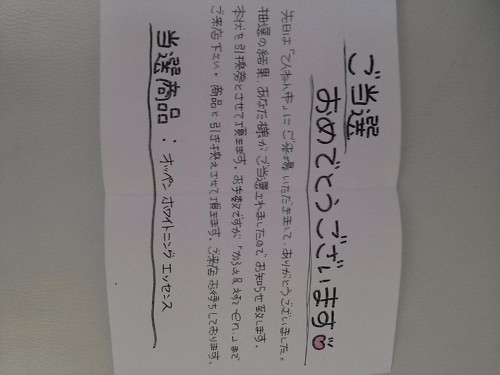 ご当選
おめでとうございます
先日は「てんちむ市」にご来場いただきまして、ありがとうございました。
抽選の結果、あなた様がご当選されましたのでお知らせ致します。
本状を引換券とさせて頂きます。お手数ですが「からだ&えすてen.」まで
ご来店下さい。商品と引き換えさせて頂きます。ご来店お待ちしております。
当選商品：オッペン ホワイトニングエッセンス